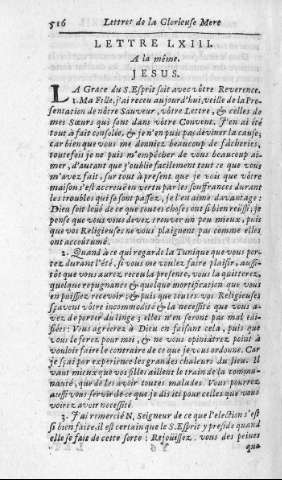 516 Lettres de la Glorieuse Mere
LETTRE LXIII.
A la même.
JESUS.
LA Grace du S. Esprit soit avec vôtre Reverence.
1. Ma Fille, j'ai receu aujourd'hui, veille de la Pre-
sentation de nôtre Sauveur, vôtre Lettre, & celles de
mes Sœurs qui sont dans vôtre Convent. J'en ai été
tout à fait consolée, & je n'en puis pas deviner la cause,
car bien que vous me donniez beaucoup de fâcheries,
toutefois je ne puis m'empêcher de vous beaucoup ai-
mer, d'autant que j'oublie facilement tout ce que vous
m'avez fait, sur tout à present que je vois que vôtre
maison s'est accrouë en vertu par les souffrances durant
les troubles qui se sont passez, je l'en aime davantage:
Dieu soit loüé de ce que toutes choses ont si bien reüssi, je
pense que vous vous devez trouver un peu mieux, puis
que vos Religieuses ne vous plaignent pas comme elles
ont accoûtumé.
2. Quand à ce qui regarde la Tunique que vous por-
tez durant l'été, si vous me voulez faire plaisir, aussi-
tôt que vous aurez receu la presente, vous la quitterez,
quelque repugnance & quelque mortification que vous
en puissiez recevoir; & puis que toutes vos Religieuses
sçavent vôtre incommodité & la necessité que vous a-
vez de porter du linge; elles n'en seront pas mal edi-
fiées: Vous agréerez à Dieu en faisant cela, puis que
vous le ferez pour moi, & ne vous opiniâtrez point à
vouloir faire le contraire de ce que je vous ordonne. Car
je sçai par experience les grandes chaleurs du païs. Il
vaut mieux que vos filles aillent le train de la commu-
nauté, que de les avoir toutes malades. Vous pourrez
aussi vous servir de ce que je dis ici pour celles que vous
verrez avoir necessité.
3. J'ai remercié N, Seigneur de ce que l'election s'est
si bien faite, il est certain que le S. Esprit y preside quand
elle se fait de cette sorte: Rejoüissez vous des peines
que